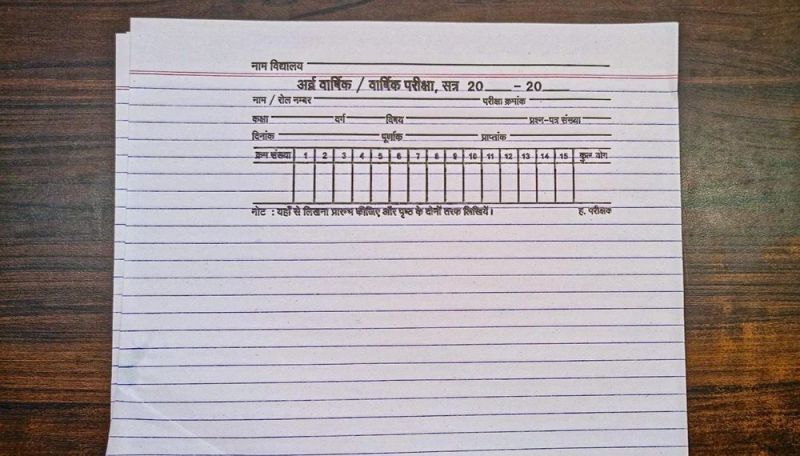 नाम विद्यालय
अर्द्ध वार्षिक / वार्षिक परीक्षा, सत्र 20____ - 20____
नाम / रोल नम्बर परीक्षा क्रमांक
कक्षा वर्ग विषय प्रश्न-पत्र संख्या
दिनांक पूर्णांक प्राप्तांक
क्रम संख्या 1 2 3 4 5 6 7 8 9 10 11 12 13 14 15 कुल योग
नोट : यहाँ से लिखना प्रारम्भ कीजिए और पृष्ठ के दोनों तरफ लिखिये। ह. परीक्षक